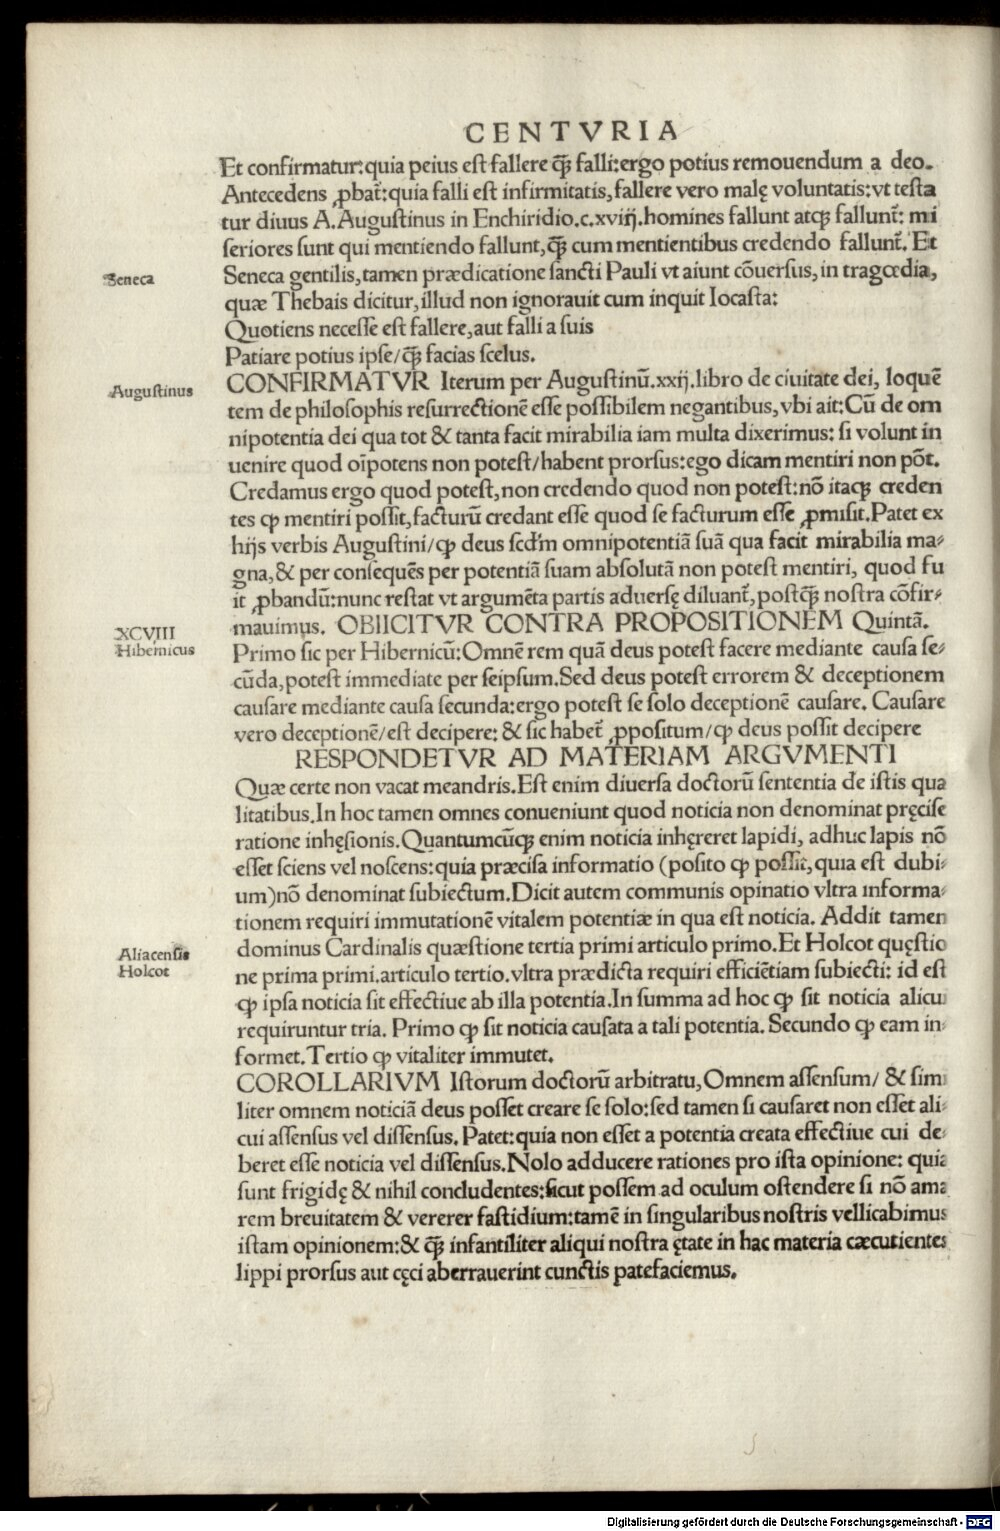 CENTVRIA
Et confirmatur:quia peius est fallere ꝙ̃ falli:ergo potius remouendum a deo.
Antecedens ꝓbat̃:quia falli est infirmitatis,fallere vero malę voluntatis:vt testa
tur diuus A.Augustinus in Enchiridio.c.xviij.homines fallunt atqꝫ fallunt̃: mi
seriores sunt qui mentiendo fallunt,ꝙ̃ cum mentientibus credendo fallunt̃. Et
Seneca
Seneca gentilis,tamen prædicatione sancti Pauli vt aiunt cõuersus,in tragœdia,
quæ Thebais dicitur,illud non ignorauit cum inquit Iocasta:
Quotiens necesse est fallere,aut falli a suis
Patiare potius ipse/ꝙ̃ facias scelus.
Augustinus
CONFIRMATVR Iterum per Augustinũ.xxij.libro de ciuitate dei, loquẽ
tem de philosophis resurrectionẽ esse possibilem negantibus,vbi ait:Cũ de om
nipotentia dei qua tot & tanta facit mirabilia iam multa dixerimus: si volunt in
uenire quod oĩpotens non potest/habent prorsus:ego dicam mentiri non põt.
Credamus ergo quod potest,non credendo quod non potest:nõ itaqꝫ creden
tes ꝙ mentiri possit,facturũ credant esse quod se facturum esse ꝓmisit.Patet ex
hijs verbis Augustini/ꝙ deus sed'm omnipotentiã suã qua facit mirabilia ma⸗
gna,& per consequẽs per potentiã suam absolutã non potest mentiri, quod fu
it ꝓbandũ:nunc restat vt argumẽta partis aduersę diluant̃,postꝙ̃ nostra cõfir⸗
mauimus. OBIICITVR CONTRA PROPOSITIONEM Quintã.
XCVIII
Hibernicus
Primo sic per Hibernicũ:Omnẽ rem quã deus potest facere mediante causa se⸗
cũda,potest immediate per seipsum.Sed deus potest errorem & deceptionem
causare mediante causa secunda:ergo potest se solo deceptionẽ causare. Causare
vero deceptionẽ/est decipere: & sic habet̃ ꝓpositum/ꝙ deus possit decipere
RESPONDETVR AD MATERIAM ARGVMENTI
Quæ certe non vacat meandris.Est enim diuersa doctorũ sententia de istis qua
litatibus.In hoc tamen omnes conueniunt quod noticia non denominat pręcise
ratione inhęsionis.Quantumcũqꝫ enim noticia inhęreret lapidi, adhuc lapis nõ
esset sciens vel noscens:quia præcisa informatio (posito ꝙ possit,quia est dubi⸗
um)nõ denominat subiectum.Dicit autem communis opinatio vltra informa⸗
tionem requiri immutationẽ vitalem potentiæ in qua est noticia. Addit tamen
Aliacensis
Holcot
dominus Cardinalis quæstione tertia primi articulo primo.Et Holcot quęstio
ne prima primi.articulo tertio.vltra prædicta requiri efficiẽtiam subiecti: id est
ꝙ ipsa noticia sit effectiue ab illa potentia.In summa ad hoc ꝙ sit noticia alicui
requiruntur tria. Primo ꝙ sit noticia causata a tali potentia. Secundo ꝙ eam in⸗
formet.Tertio ꝙ vitaliter immutet.
COROLLARIVM Istorum doctorũ arbitratu,Omnem assensum/ & simi
liter omnem noticiã deus posset creare se solo:sed tamen si causaret non esset ali⸗
cui assensus vel dissensus. Patet:quia non esset a potentia creata effectiue cui de⸗
beret esse noticia vel dissensus.Nolo adducere rationes pro ista opinione: quia
sunt frigidę & nihil concludentes:sicut possem ad oculum ostendere si nõ ama
rem breuitatem & vererer fastidium:tamẽ in singularibus nostris vellicabimus
istam opinionem:& ꝙ̃ infantiliter aliqui nostra ętate in hac materia cæcutientes
lippi prorsus aut cęci aberrauerint cunctis patefaciemus.
Digitalisierung gefördert durch die Deutsche Forschungsgemeinschaft - DFG